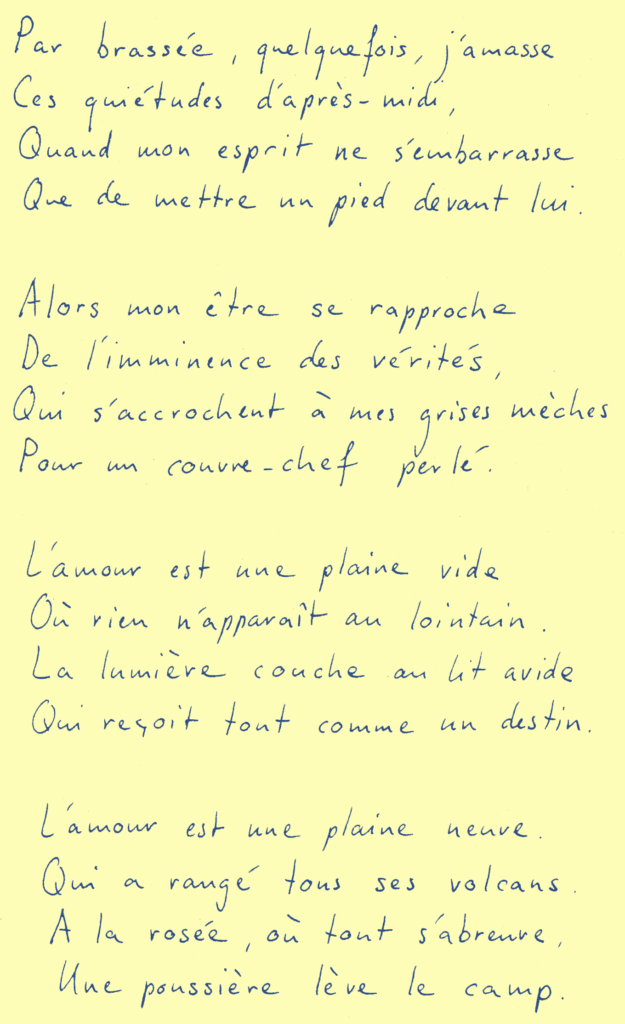 Par brassée, quelquefois, j'amasse
Ces quiétudes d'après-midi,
Quand mon esprit ne s'embarrasse
Que de mettre un pied devant lui.

Alors mon être se rapproche
De l'imminence des vérités,
Qui s'accrochent à mes grises mèches
Pour un couvre-chef perlé.

L'amour est une plaine vide
Où rien n'apparaît au lointain.
La lumière couche au lit avide
Qui reçoit tout comme un destin.

L'amour est une plaine neuve.
Qui a rangé tous ses volcans.
A la rosée, où tout s'abreuve,
Une poussière lève le camp.